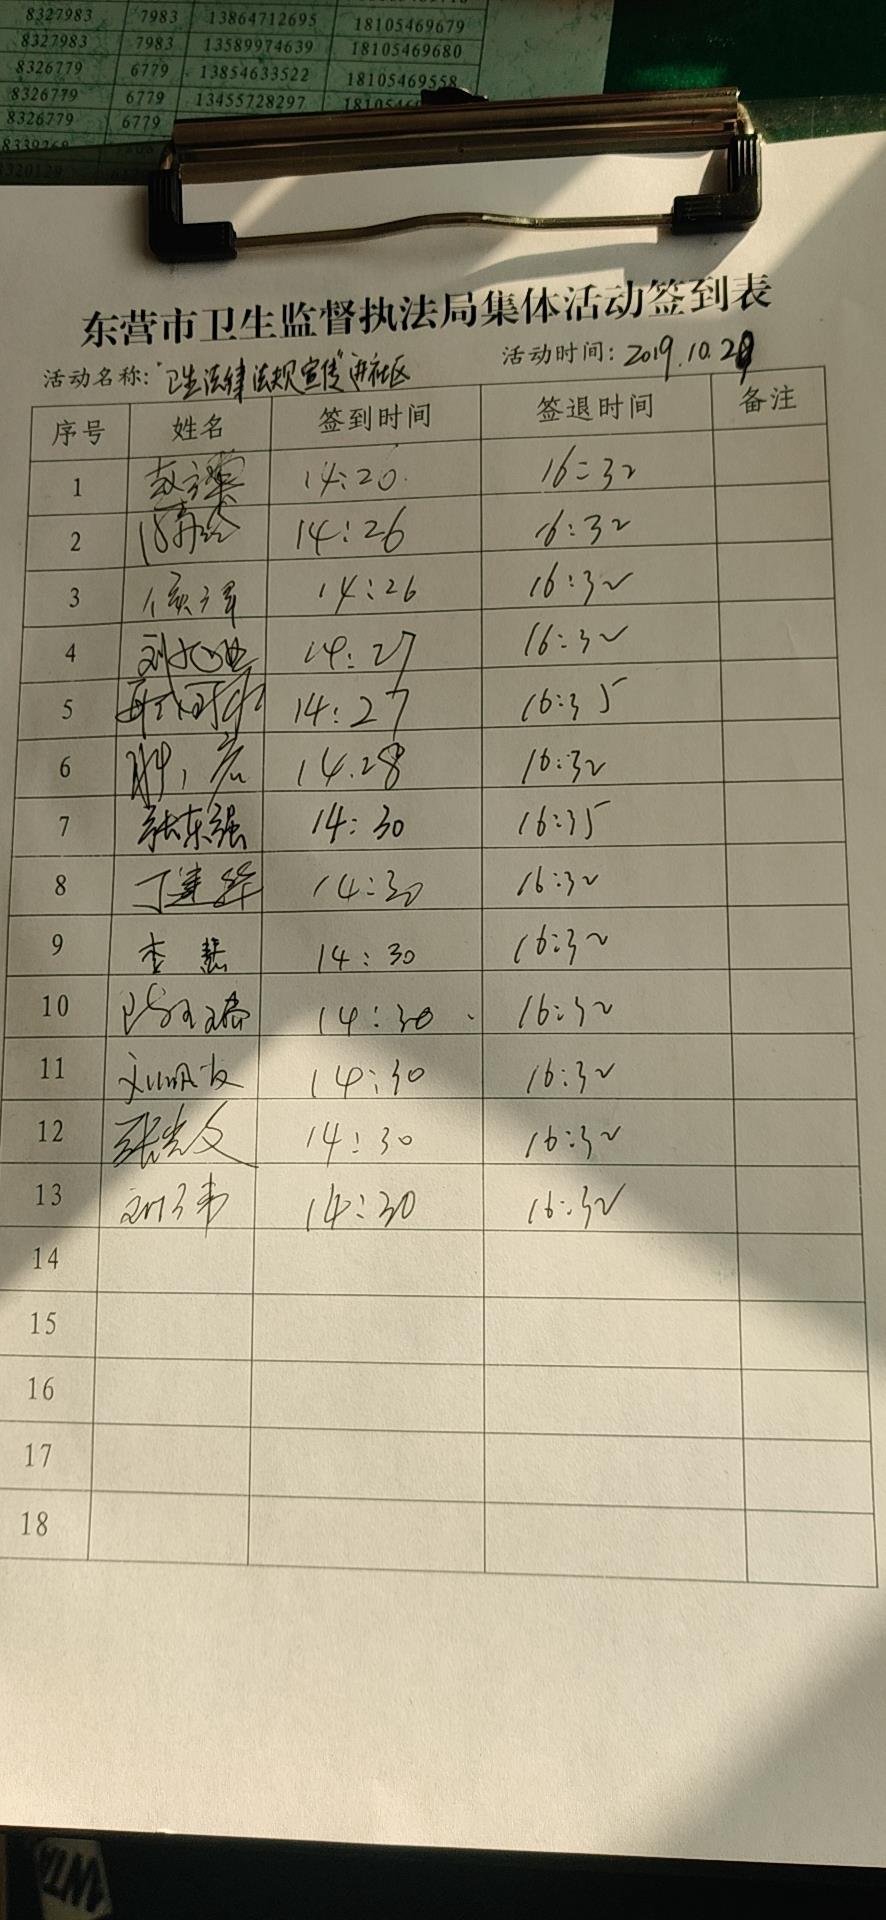 8327983 7983 13864712695 18105469679
8327983 7983 13589974639 18105469680
8326779 6779 13854633522 18105469558
8326779 6779 13455728297
8326779 6779
东营市卫生监督执法局集体活动签到表
活动名称:"卫生法律法规宣传"进社区 活动时间: 2019.10.29
序号 姓名 签到时间 签退时间 备注
1 14:20 16:32
2 14:26 16:32
3 14:26 16:32
4 14:27 16:32
5 14:27 16:35
6 14.28 16:32
7 张东强 14:30 16:35
8 丁建华 14:30 16:32
9 李慧 14:30 16:32
10 14:30 16:32
11 14:30 16:32
12 14:30 16:32
13 14:30 16:32
14
15
16
17
18